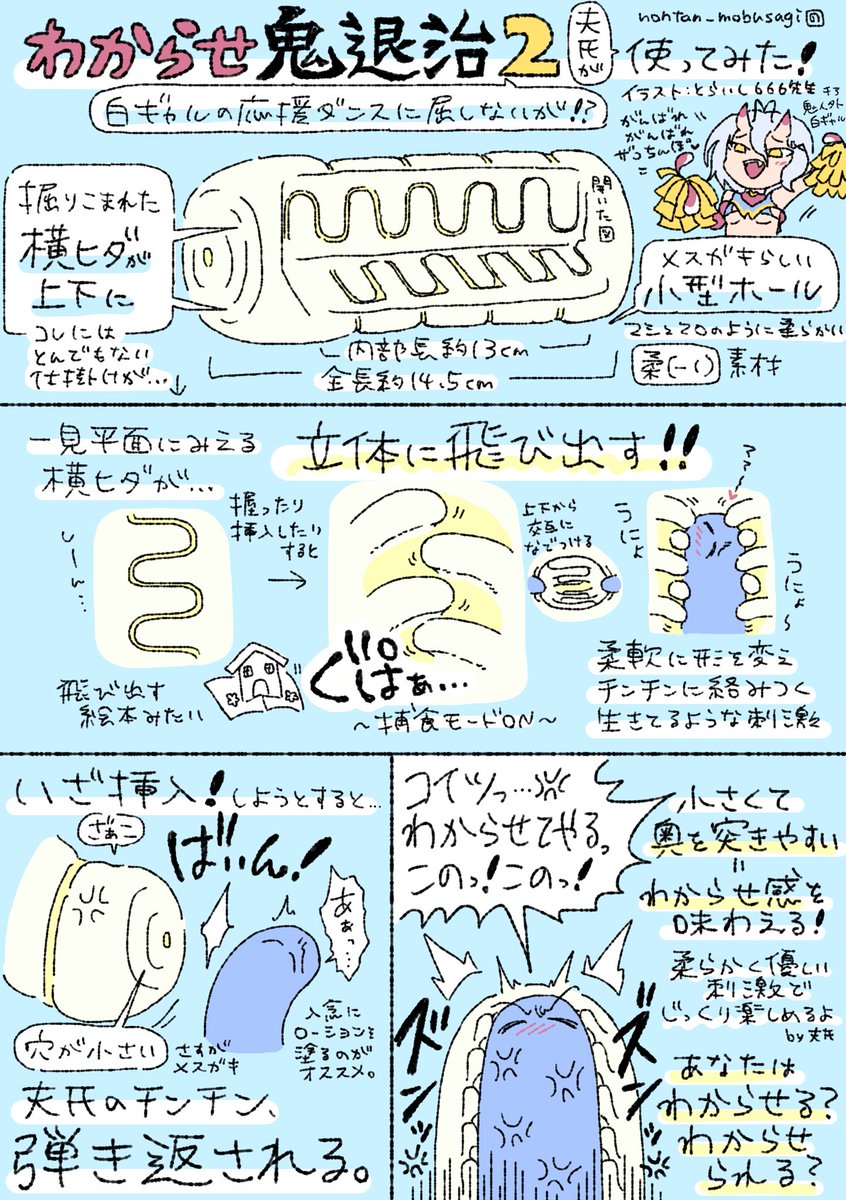 nontan_mobusagiの
わからせ鬼退治2
夫氏が
使ってみた!
白ギャルの応援ダンスに屈しないが!?
イラスト:とらいし666先生
がんばれ
がんばれ
ざっちんぽ♥
掘りこまれた
横ヒダが
上下に
コレには
とんでもない
仕掛けが…↓
開いた図
内部長約13cm
全長約14.5cm
メスガキらしい
小型ホール
マシュマロのように柔らかい
柔(-1)素材
一見平面にみえる
横ヒダが…
立体に飛び出す!!
しーん…
握ったり
挿入したり
すると
→
上下から
交互に
なでつける
うにょ
うにょ〜
飛び出す
絵本みたい
ぐぱぁ…
〜捕食モードON〜
柔軟に形を変え
チンチンに絡みつく
生きてるような刺激
いざ挿入!しようとすると…
ざぁこ
ばいん!
あぁっ…
穴が小さい
さすが
メスガキ
入念に
ローションを
塗るのが
オススメ。
夫氏のチンチン、
弾き返される。
コイツっ…
わからせてやるっ
このっ!このっ!
ズン
ズン
小さくて
奥を突きやすい
=
わからせ感を
味わえる!
柔らかく優しい
刺激で
じっくり楽しめるよ
by夫氏
あなたは
わからせる?
わからせ
られる?